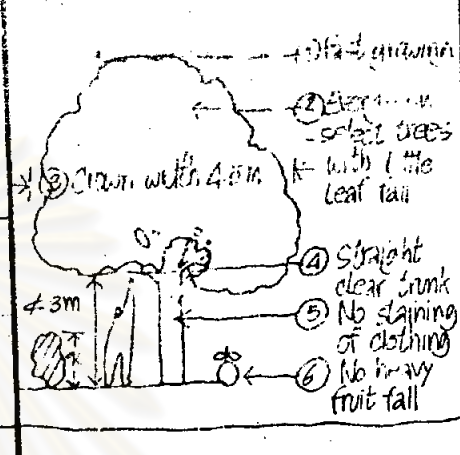 ① fast growing
② Evergreen
- select trees
with little
leaf fall
③ Crown width 4.5m
④ Straight
clear trunk
≮ 3m
⑤ No staining
of clothing
⑥ No heavy
fruit fall